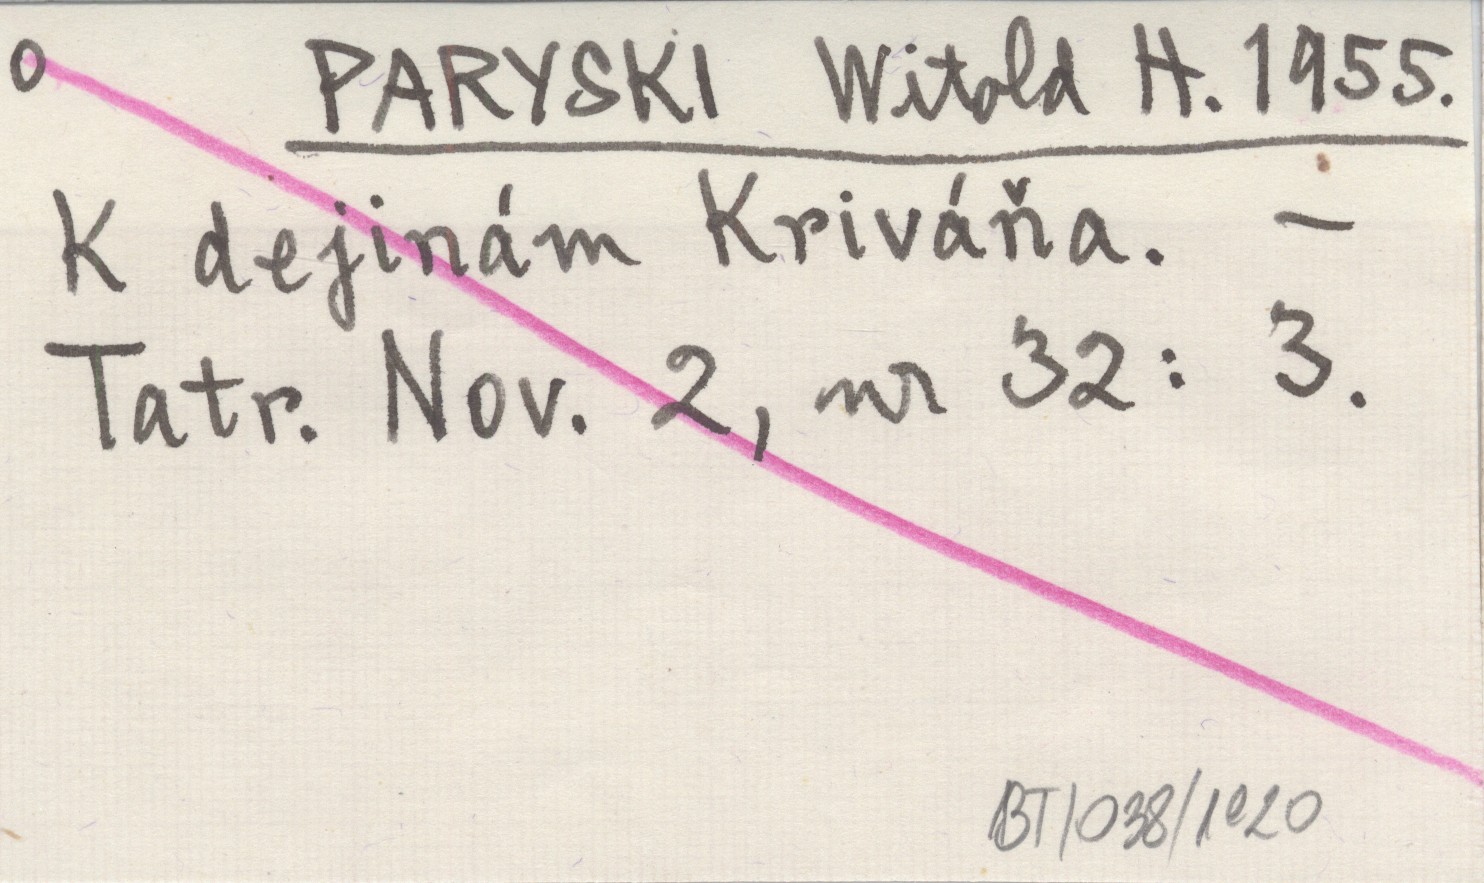 O PARYSKI Witold H. 1955.
K dejinám Kriváňa. –
Tatr. Nov. 2, nr 32: 3.
BT/038/1020